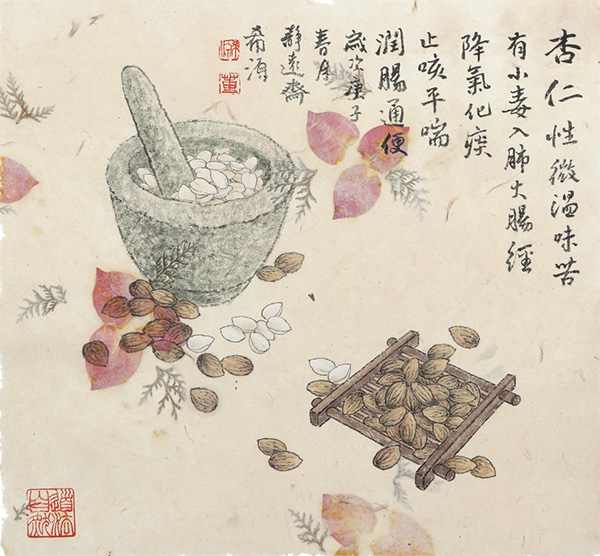 杏仁性微温味苦
有小毒入肺大腸經
降氣化痰
止咳平喘
潤腸通便
歲次庚子
春月
靜遠齋
希湏
道法自然